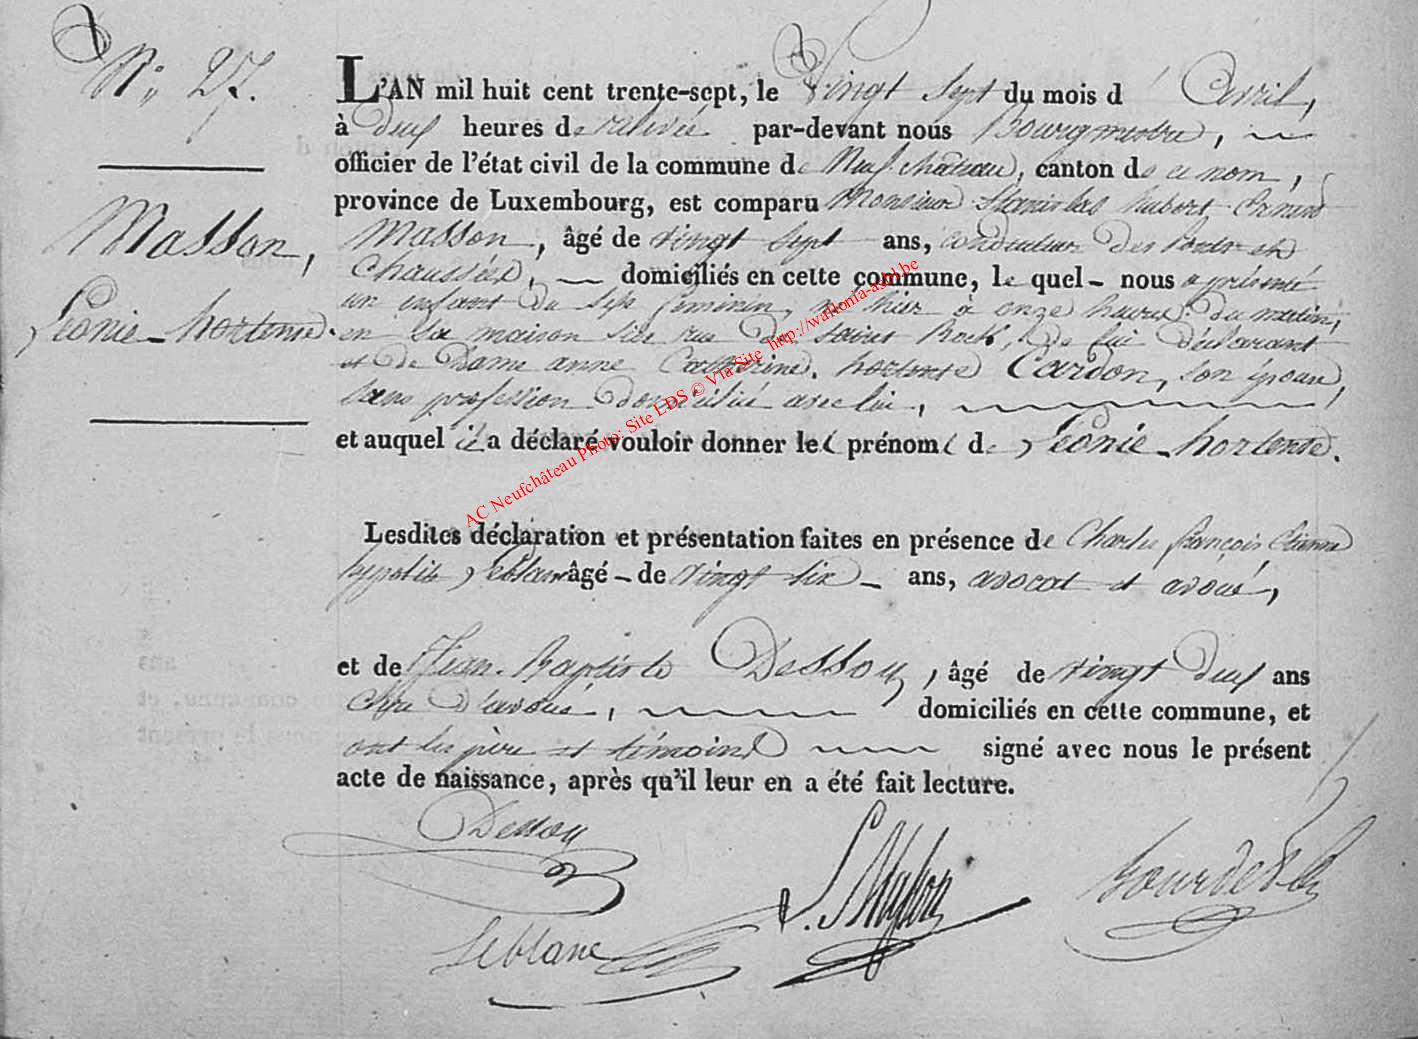 N.° 27.
Masson,
Léonie-hortense.
L'AN mil huit cent trente-sept, le Vingt Sept du mois d' Avril,
à Deux heures de relevée par-devant nous Bourgmestre,
officier de l'état civil de la commune de Neufchâteau, canton de ce nom,
province de Luxembourg, est comparu Monsieur Stanislas hubert Ernest
Masson, âgé de vingt sept ans, conducteur Des Ponts et
Chaussées, domiciliés en cette commune, le quel nous a présenté
un enfant du Sexe féminin, né hier à onze heures du matin,
en Sa maison Sise rue de saint Roch, de lui Déclarant
et de Dame anne Catherine hortense Cardon, son épouse,
sans profession domiciliée avec lui,
et auquel il a déclaré vouloir donner les prénoms de Léonie-hortense.
Lesdites déclaration et présentation faites en présence de Charles françois Etienne
hypolite Leblanc âgé de vingt six ans, avocat et avoué,
et de Jean-Baptiste Dessoy, âgé de vingt Deux ans
Clerc D'avoué, domiciliés en cette commune, et
ont les père et témoins signé avec nous le présent
acte de naissance, après qu'il leur en a été fait lecture.
Dessoy
S. Masson
Leblanc
AC Neufchâteau Photo: Site LDS © Via Site http://wallonia-asbl.be